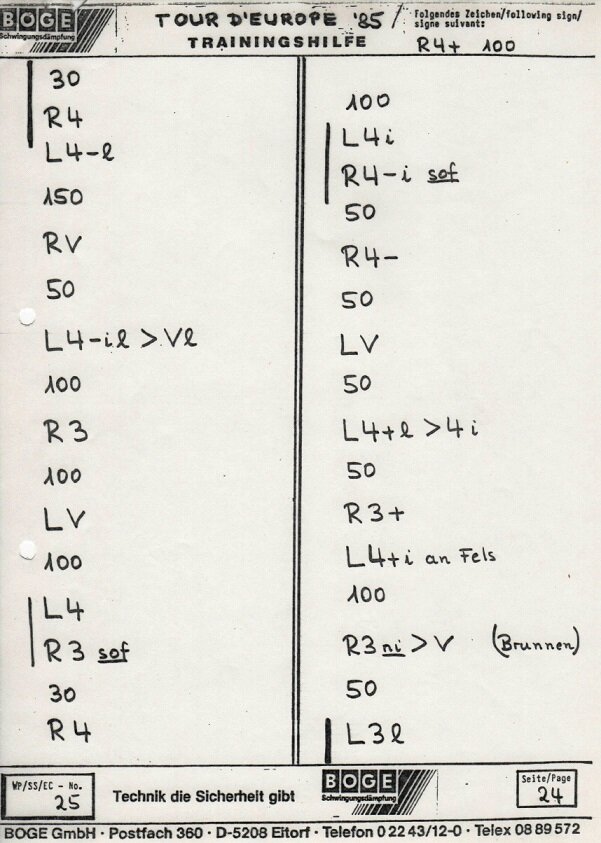 BOGE
Schwingungsdämpfung
TOUR D'EUROPE '85
TRAININGSHILFE
Folgendes Zeichen/following sign/
signe suivant:
R4+ 100
30
R4
L4-l
150
RV
50
L4-il >Vl
100
R3
100
LV
100
L4
R3 sof
30
R4
100
L4i
R4-i sof
50
R4-
50
LV
50
L4+l >4i
50
R3+
L4+i an Fels
100
R3 ni >V (Brunnen)
50
L3l
WP/SS/EC - No.
25
Technik die Sicherheit gibt
BOGE
Schwingungsdämpfung
Seite/Page
24
BOGE GmbH · Postfach 360 · D-5208 Eitorf · Telefon 0 22 43/12-0 · Telex 08 89 572